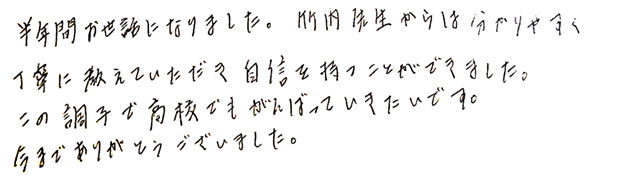 半年間お世話になりました。竹内先生からは分かりやすく
丁寧に教えていただき自信を持つことができました。
この調子で高校でもがんばっていきたいです。
今までありがとうございました。